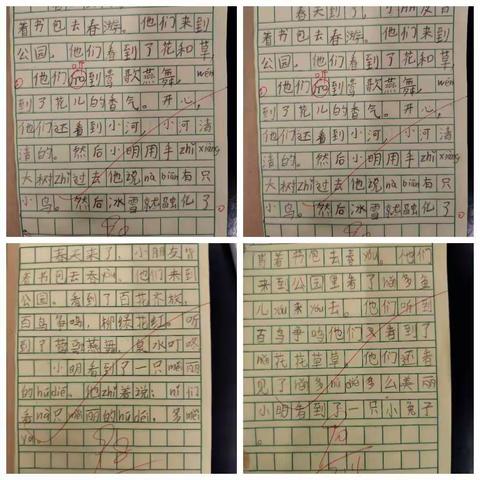 着书包去春游。他们来到
公园,他们看到了花和草,
他们听到莺歌燕舞,wén
到了花儿的香气。开心,
他们还看到小河,小河清
清的。然后小明用手zhǐ xiàng
大树zhǐ过去他说nà biān有只
小鸟。然后冰雪就融化了
90
春天到了,小朋友背
着书包去春游。他们来到
公园,他们看到了花和草,
他们听到莺歌燕舞,wén
到了花儿的香气。开心,
他们还看到小河,小河清
清的。然后小明用手zhǐ xiàng
大树zhǐ过去他说nà biān有只
小鸟。然后冰雪就融化了
90
春天来了,小朋友背
着书包去春游。他们来到
公园。看到了百花齐放,
百鸟争鸣,柳绿花红。听
到了莺歌燕舞,泉水叮咚
小明看到了一只měi丽
的hú dié。他zhǐ着说:nǐ们
看nà只měi丽的hú dié。多měi
ya。
98
背着书包去春yóu。他们
来到公园里看了许多鱼
儿yóu来yóu去。他们听到
百鸟争鸣他们又看到了
花花草草,他们还看
见了许多hú dié多么美丽
小明看到了一只小兔子
。